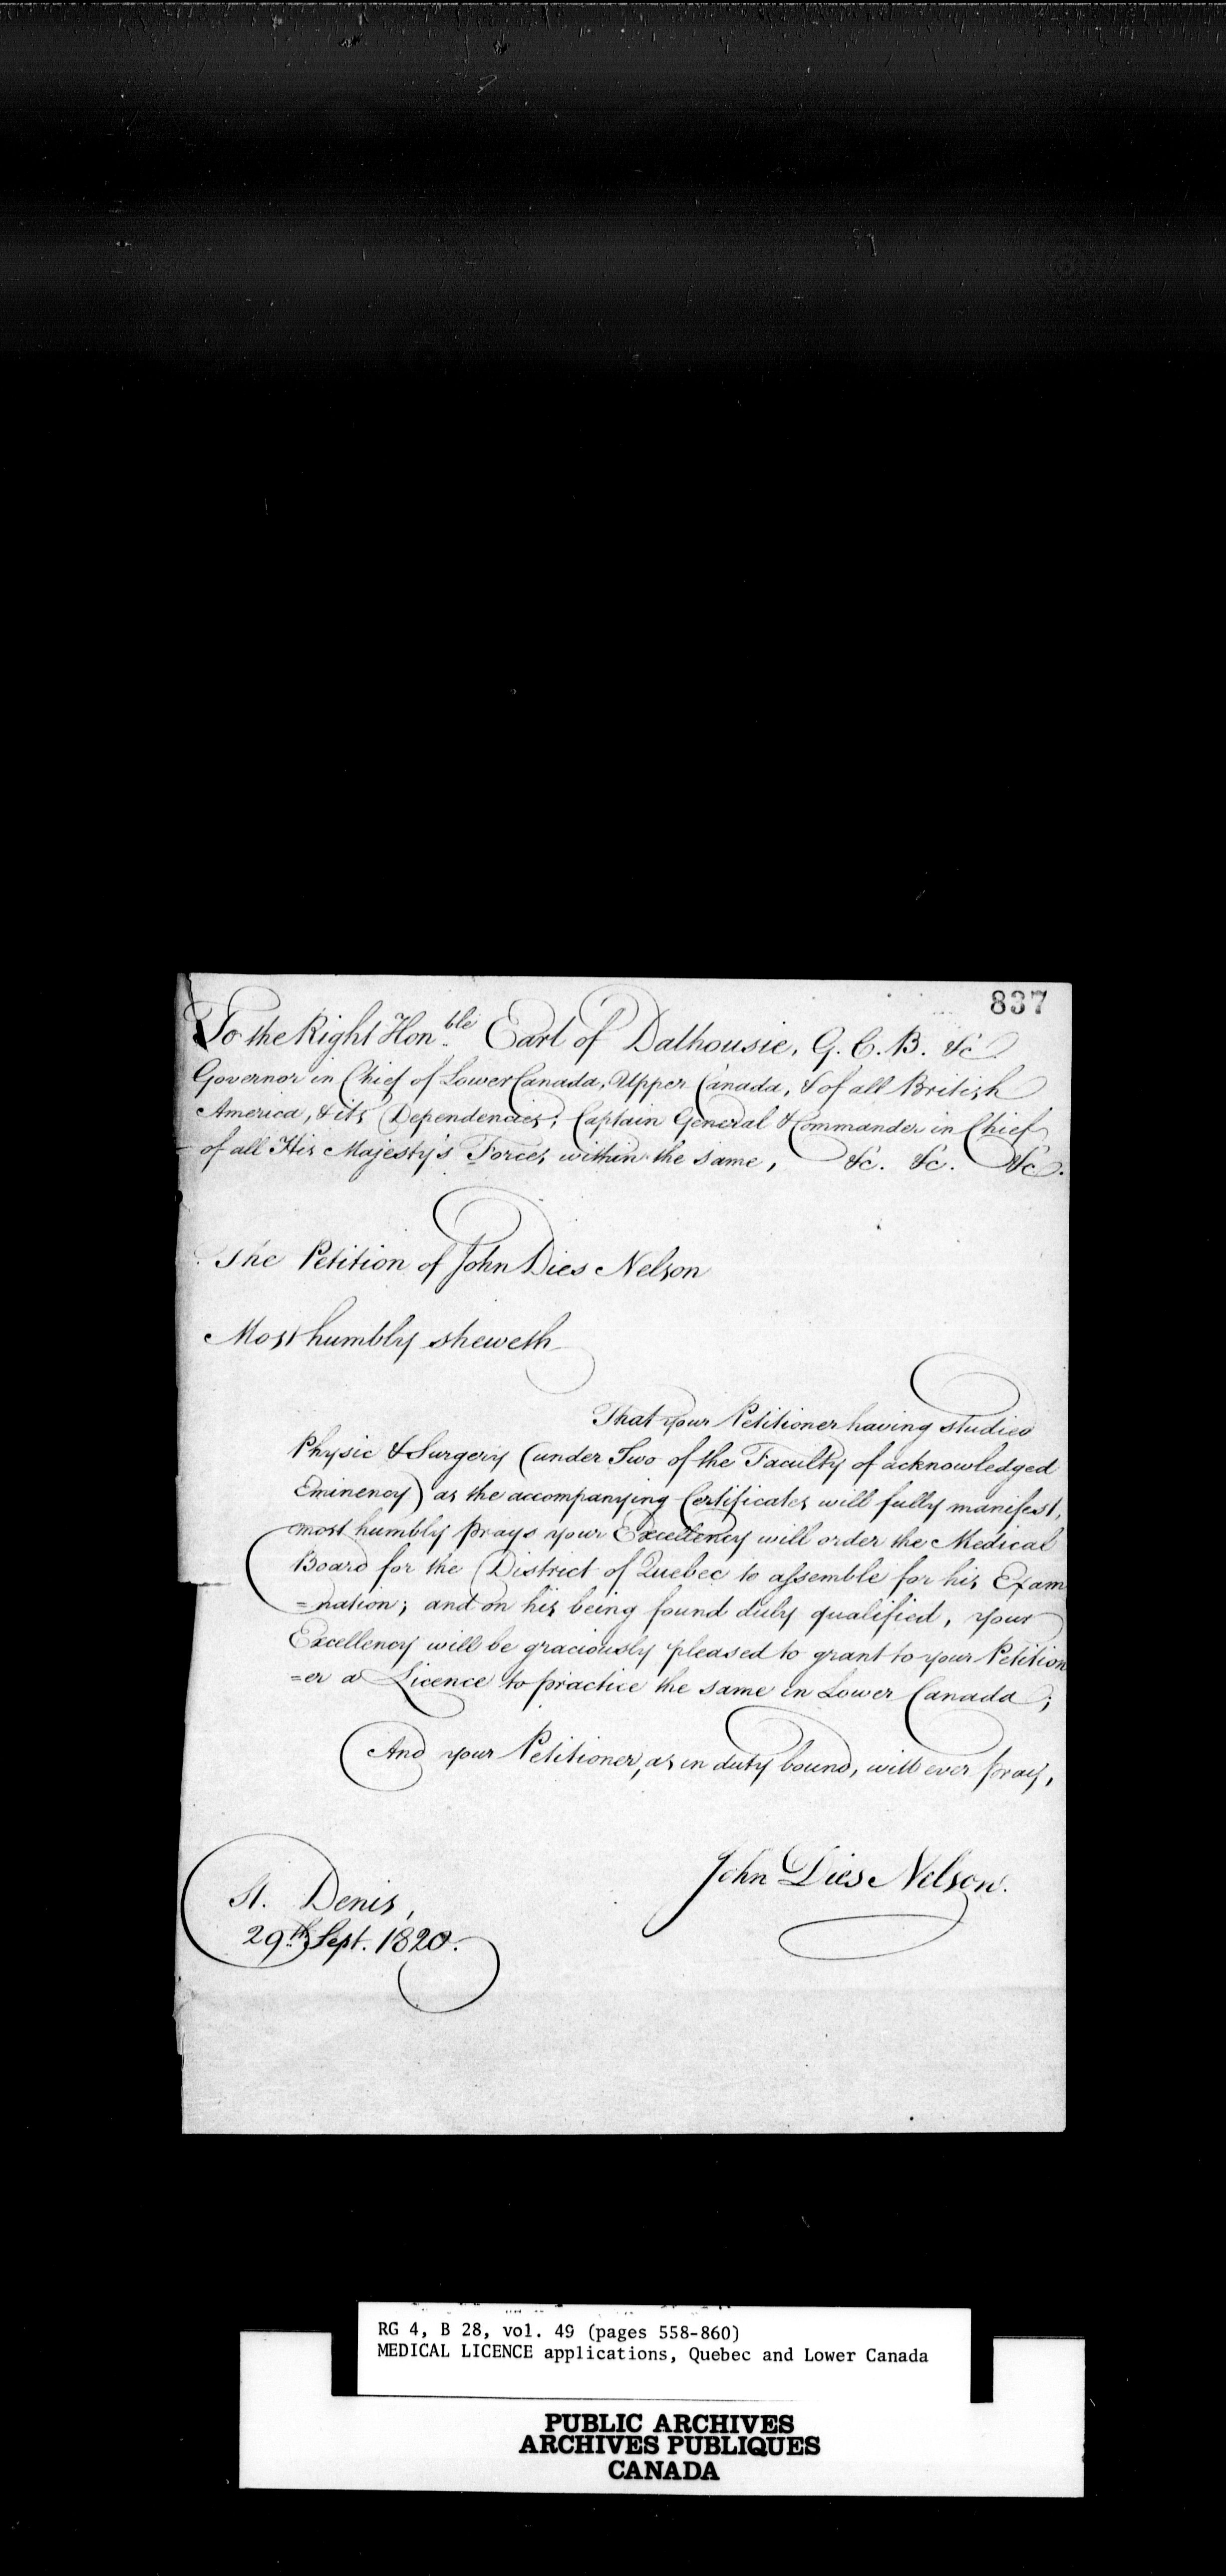 837
To the Right Honble Earl of Dalhousie, G. C. B. &c
Governor in Chief of Lower Canada, Upper Canada, & of all British
America, & its Dependencies; Captain General & Commander in Chief
of all His Majesty's Forces within the same, &c. &c. &c.
The Petition of John Dies Nelson
Most humbly sheweth
That your Petitioner having studied
Physic & Surgery (under Two of the Faculty of acknowledged
Eminency) as the accompanying Certificates will fully manifest,
most humbly prays your Excellency will order the Medical
Board for the District of Quebec to assemble for his Exam
=nation; and on his being found duly qualified, your
Excellency will be graciously pleased to grant to your Petition
=er a Licence to practice the same in Lower Canada;
And your Petitioner, as in duty bound, will ever pray,
John Dies Nelson.
St. Denis,
29th Sept. 1820.
RG 4, B 28, vol. 49 (pages 558-860)
MEDICAL LICENCE applications, Quebec and Lower Canada
PUBLIC ARCHIVES
ARCHIVES PUBLIQUES
CANADA